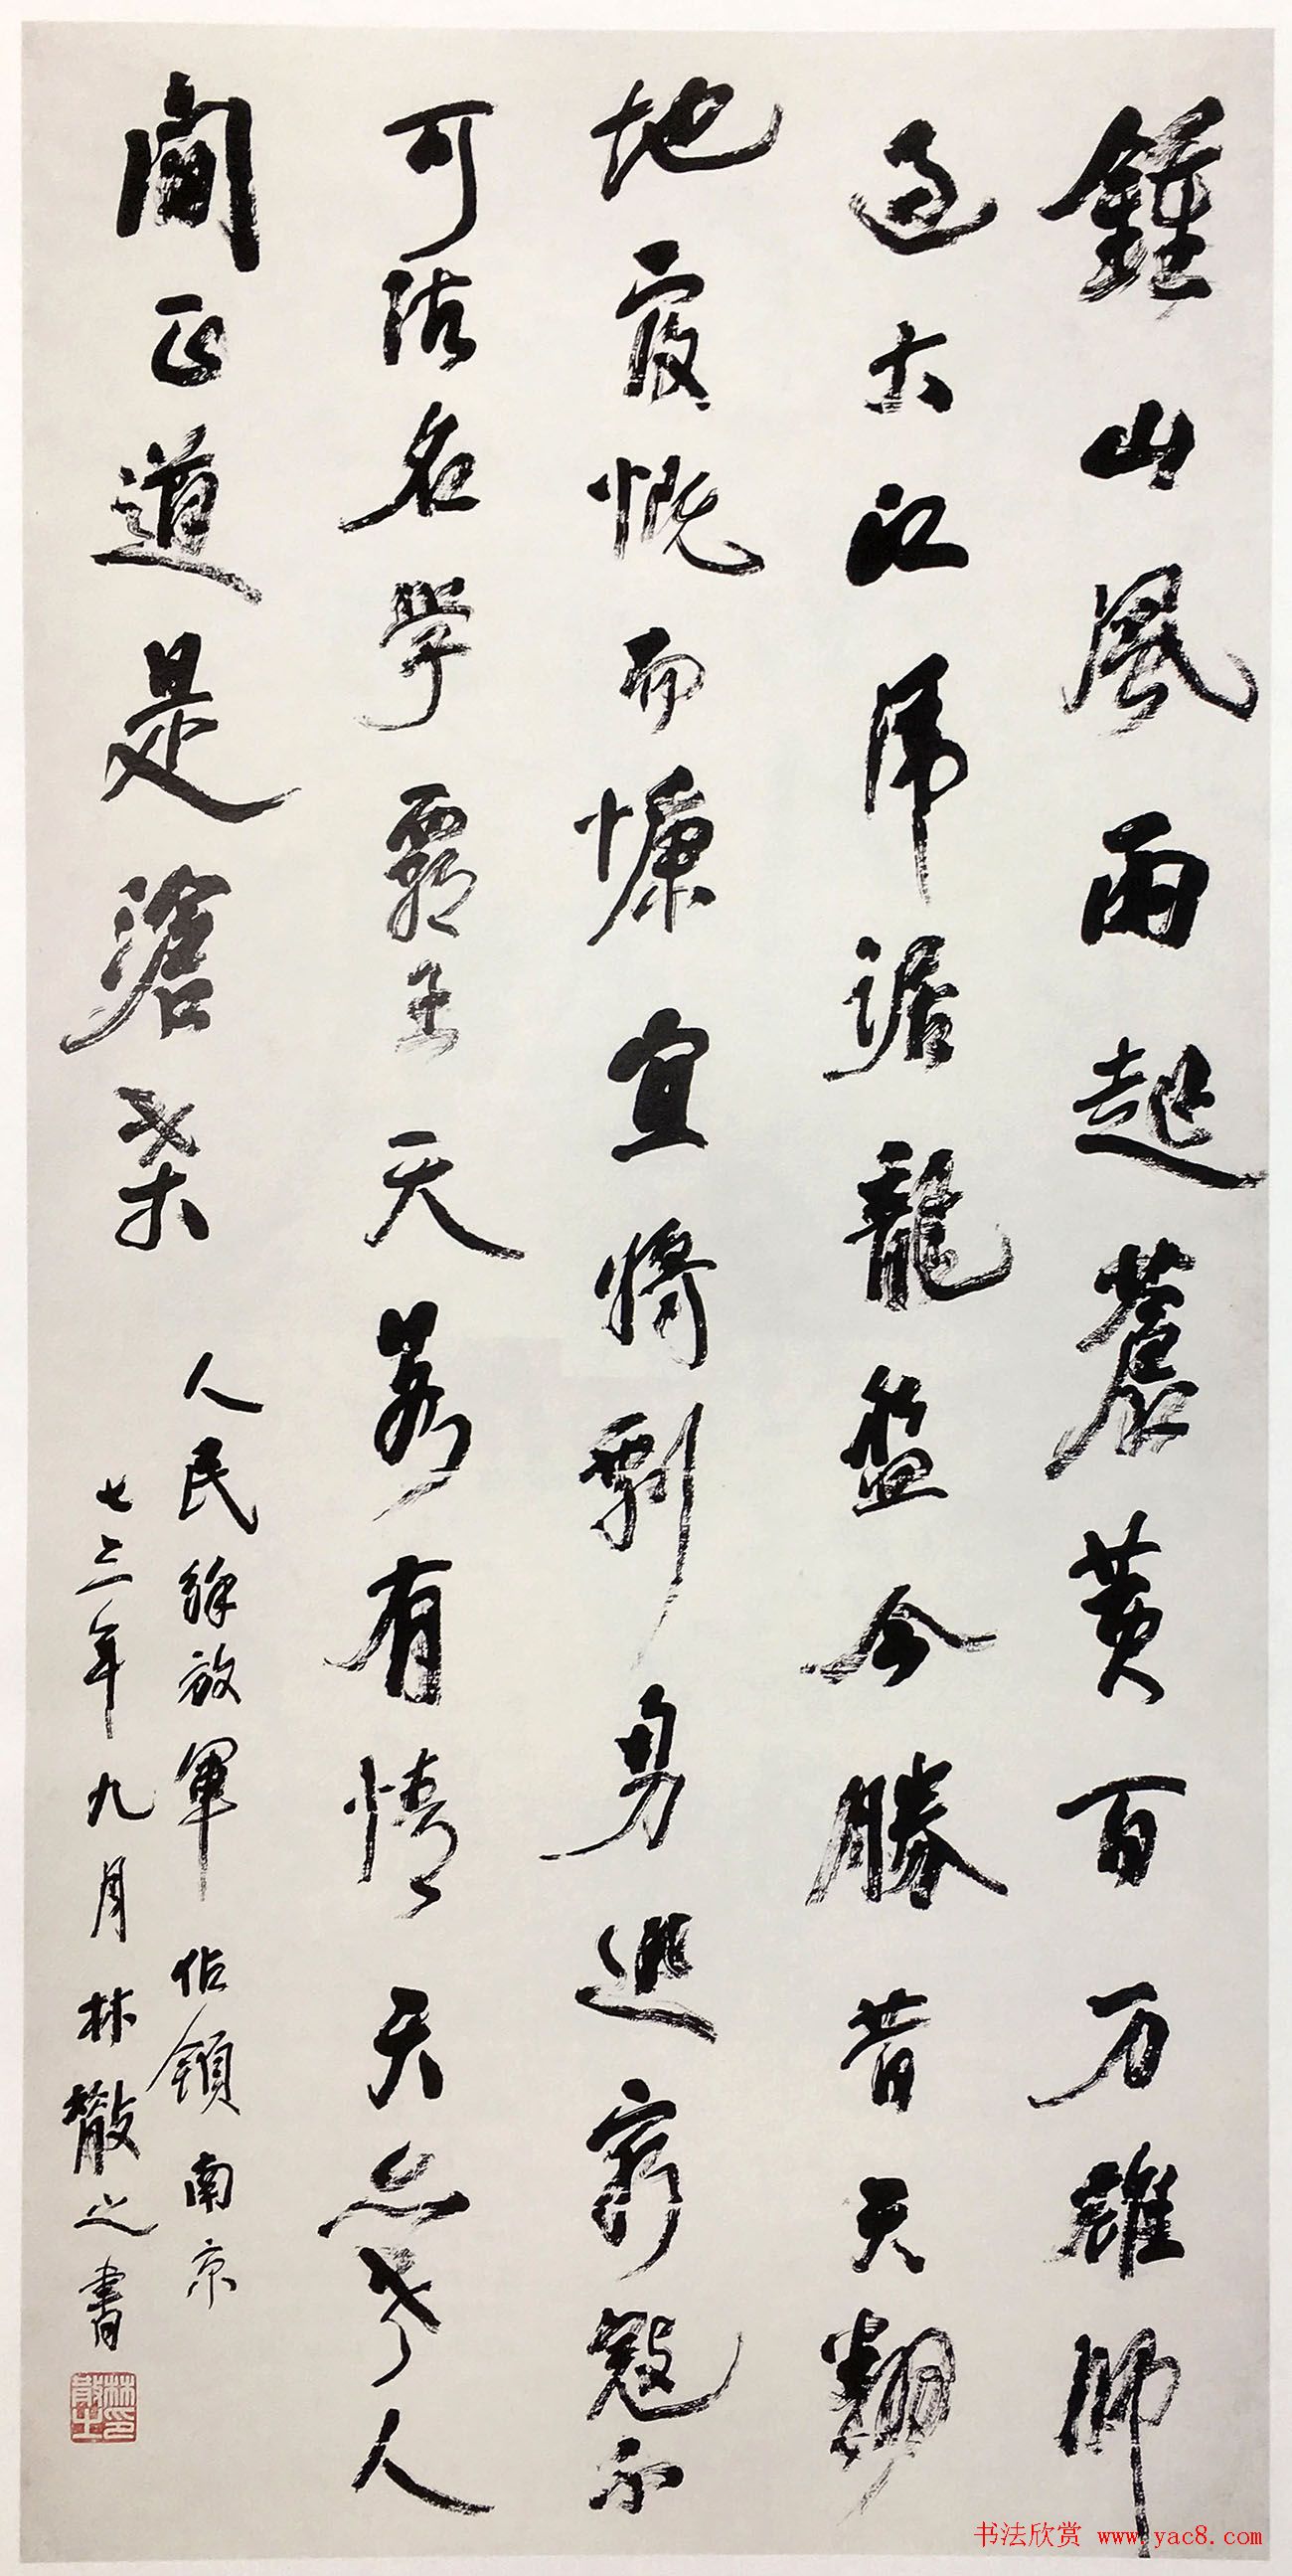 鍾山風雨起蒼黄百万雄師
過大江虎踞龍盘今勝昔天翻
地覆慨而慷宜將剩勇追窮寇不
可沽名學霸王天若有情天亦老人
間正道是滄桑
人民解放軍佔領南京
七三年九月林散之書
林散之印
书法欣赏 www.yac8.com